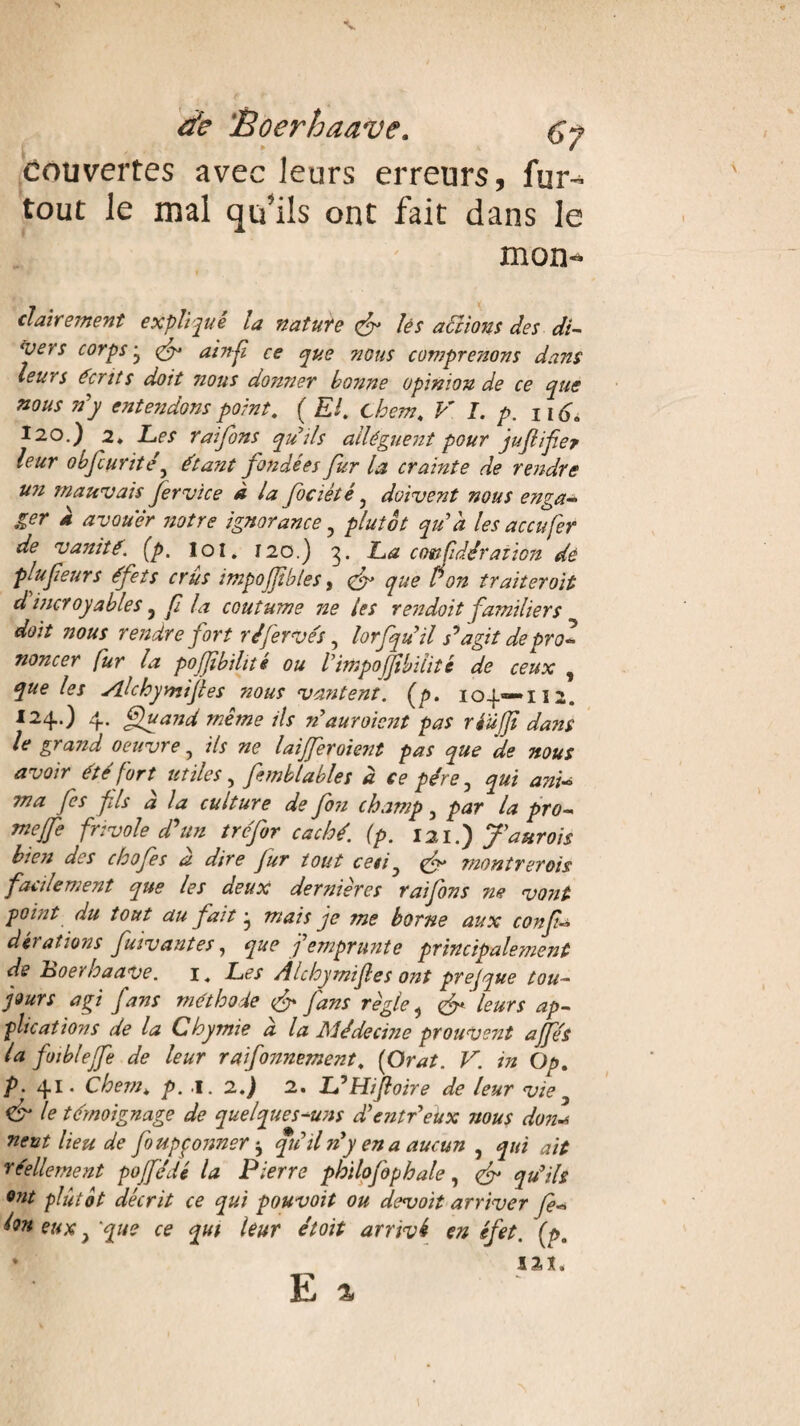 de Boerhaave. 67
couvertes avec leurs erreurs, ſur-
tout le mal qu'ils ont fait dans le
mon-
clairement expliqué la nature & les actions des di-
vers corps; & ainſi ce que nous comprenons dans
leurs écrits doit nous donner bonne opinion de ce que
nous n'y entendons point. ( El. Chem. V. I. p. 116.
120.) 2. Les raiſons qu'ils alléguent pour juſtifier
leur obſcurité, étant fondées ſur la crainte de rendre
un mauvais ſervice à la ſociété, doivent nous enga-
ger à avouër notre ignorance, plutôt qu'à les accuſer
de vanité. (p. 101. 120.) 3. La conſidération de
pluſieurs éfets crûs impoſſibles, & que l'on traiteroit
d'incroyables, ſi la coutume ne les rendoit familiers,
doit nous rendre fort réſervés, lorſqu'il s'agit de pro-
noncer ſur la poſſibilité ou l'impoſſibilité de ceux,
que les Alchymiſtes nous vantent. (p. 104—112.
124.) 4. Quand même ils n'auroient pas réüſſi dans
le grand oeuvre, ils ne laiſſeroient pas que de nous
avoir été fort utiles, ſemblables à ce pére, qui ani-
ma ſes fils à la culture de ſon champ, par la pro-
meſſe frivole d'un tréſor caché. (p. 121.) J'aurois
bien des choſes à dire ſur tout ceci, & montrerois
facilement que les deux dernières raiſons ne vont
point du tout au fait; mais je me borne aux conſi-
dérations ſuivantes, que j'emprunte principalement
de Boerhaave. 1. Les Alchymiſtes ont preſque tou-
jours agi ſans méthode & ſans règle, & leurs ap-
plications de la Chymie à la Médecine prouvent aſſés
la foibleſſe de leur raiſonnement. (Orat. V. in Op.
p. 41. Chem. p. 1. 2.) 2. L'Hiſtoire de leur vie,
& le témoignage de quelques-uns d'entr'eux nous don-
nent lieu de ſoupçonner; qu'il n'y en a aucun, qui ait
réellement poſſédé la Pierre philoſophale, & qu'ils
ont plûtôt décrit ce qui pouvoit ou devoit arriver ſe-
lon eux, que ce qui leur étoit arrivé en éfet. (p.
121.
E 2